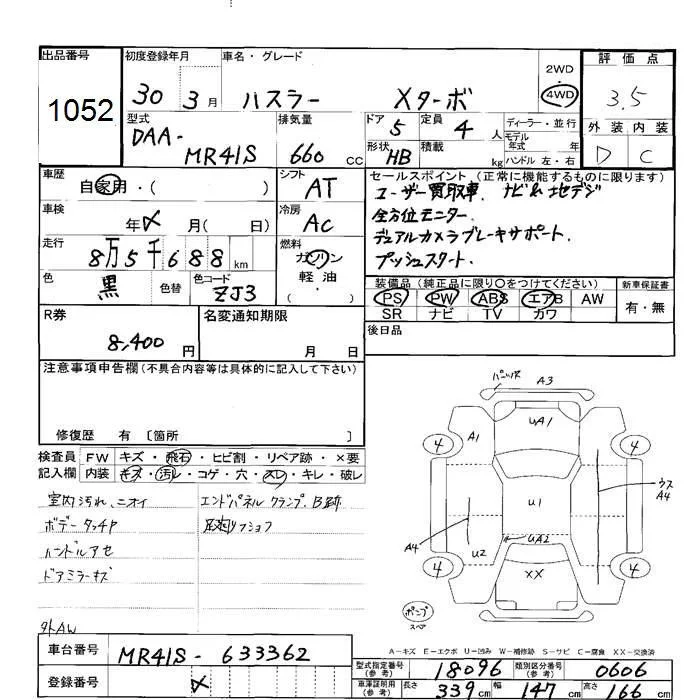 出品番号 1052
初度登録年月 30 3月
車名・グレード ハスラー Xターボ
2WD・4WD
評価点 3.5
外装 内装
D C
型式 DAA-MR41S
排気量 660cc
ドア 5 定員 4人
形状 HB 積載 kg
ディーラー・並行
モデル年式 年
ハンドル 左・右
車歴 自家用・( )
シフト AT
車検 年〆月( 日)
冷房 AC
走行 8万5千688km
燃料 ガソリン 軽油・( )
色 黒 色替 色コード ZJ3
セールスポイント(正常に機能するものに限ります)
ユーザー買取車.ナビ&地デジ
全方位モニター.
デュアルカメラブレーキサポート.
プッシュスタート.
装備品(純正品に限り〇をつけてください)
PS PW ABS エアB AW
SR ナビ TV カワ
新車保証書 有・無
後日品
R券 8,400円
名変通知期限 月 日
注意事項申告欄(不具合内容等は具体的に記入して下さい)
修復歴 有 〔箇所 〕
検査員記入欄
FW キズ・飛石・ヒビ割・リペア跡・×要
内装 キズ・汚レ・コゲ・穴・スレ・キレ・破レ
室内汚れ、ニオイ
ボデータッチP
ハンドルアセ
ドアミラーキズ
外AW
エンドパネル クランプ.B跡
バンパスレ A3
A1 UA1
4 4
U1
ウス A4
A4 U2 UA2
4 4
XX
ポンプ
スペア
A-キズ E-エクボ U-凹み W-補修跡 S-サビ C-腐食 XX-交換済
車台番号 MR41S-633362
登録番号 〆
型式指定番号(参考) 18096 類別区分番号(参考) 0606
車庫証明用(参考) 長さ 339cm 幅 147cm 高さ 166cm